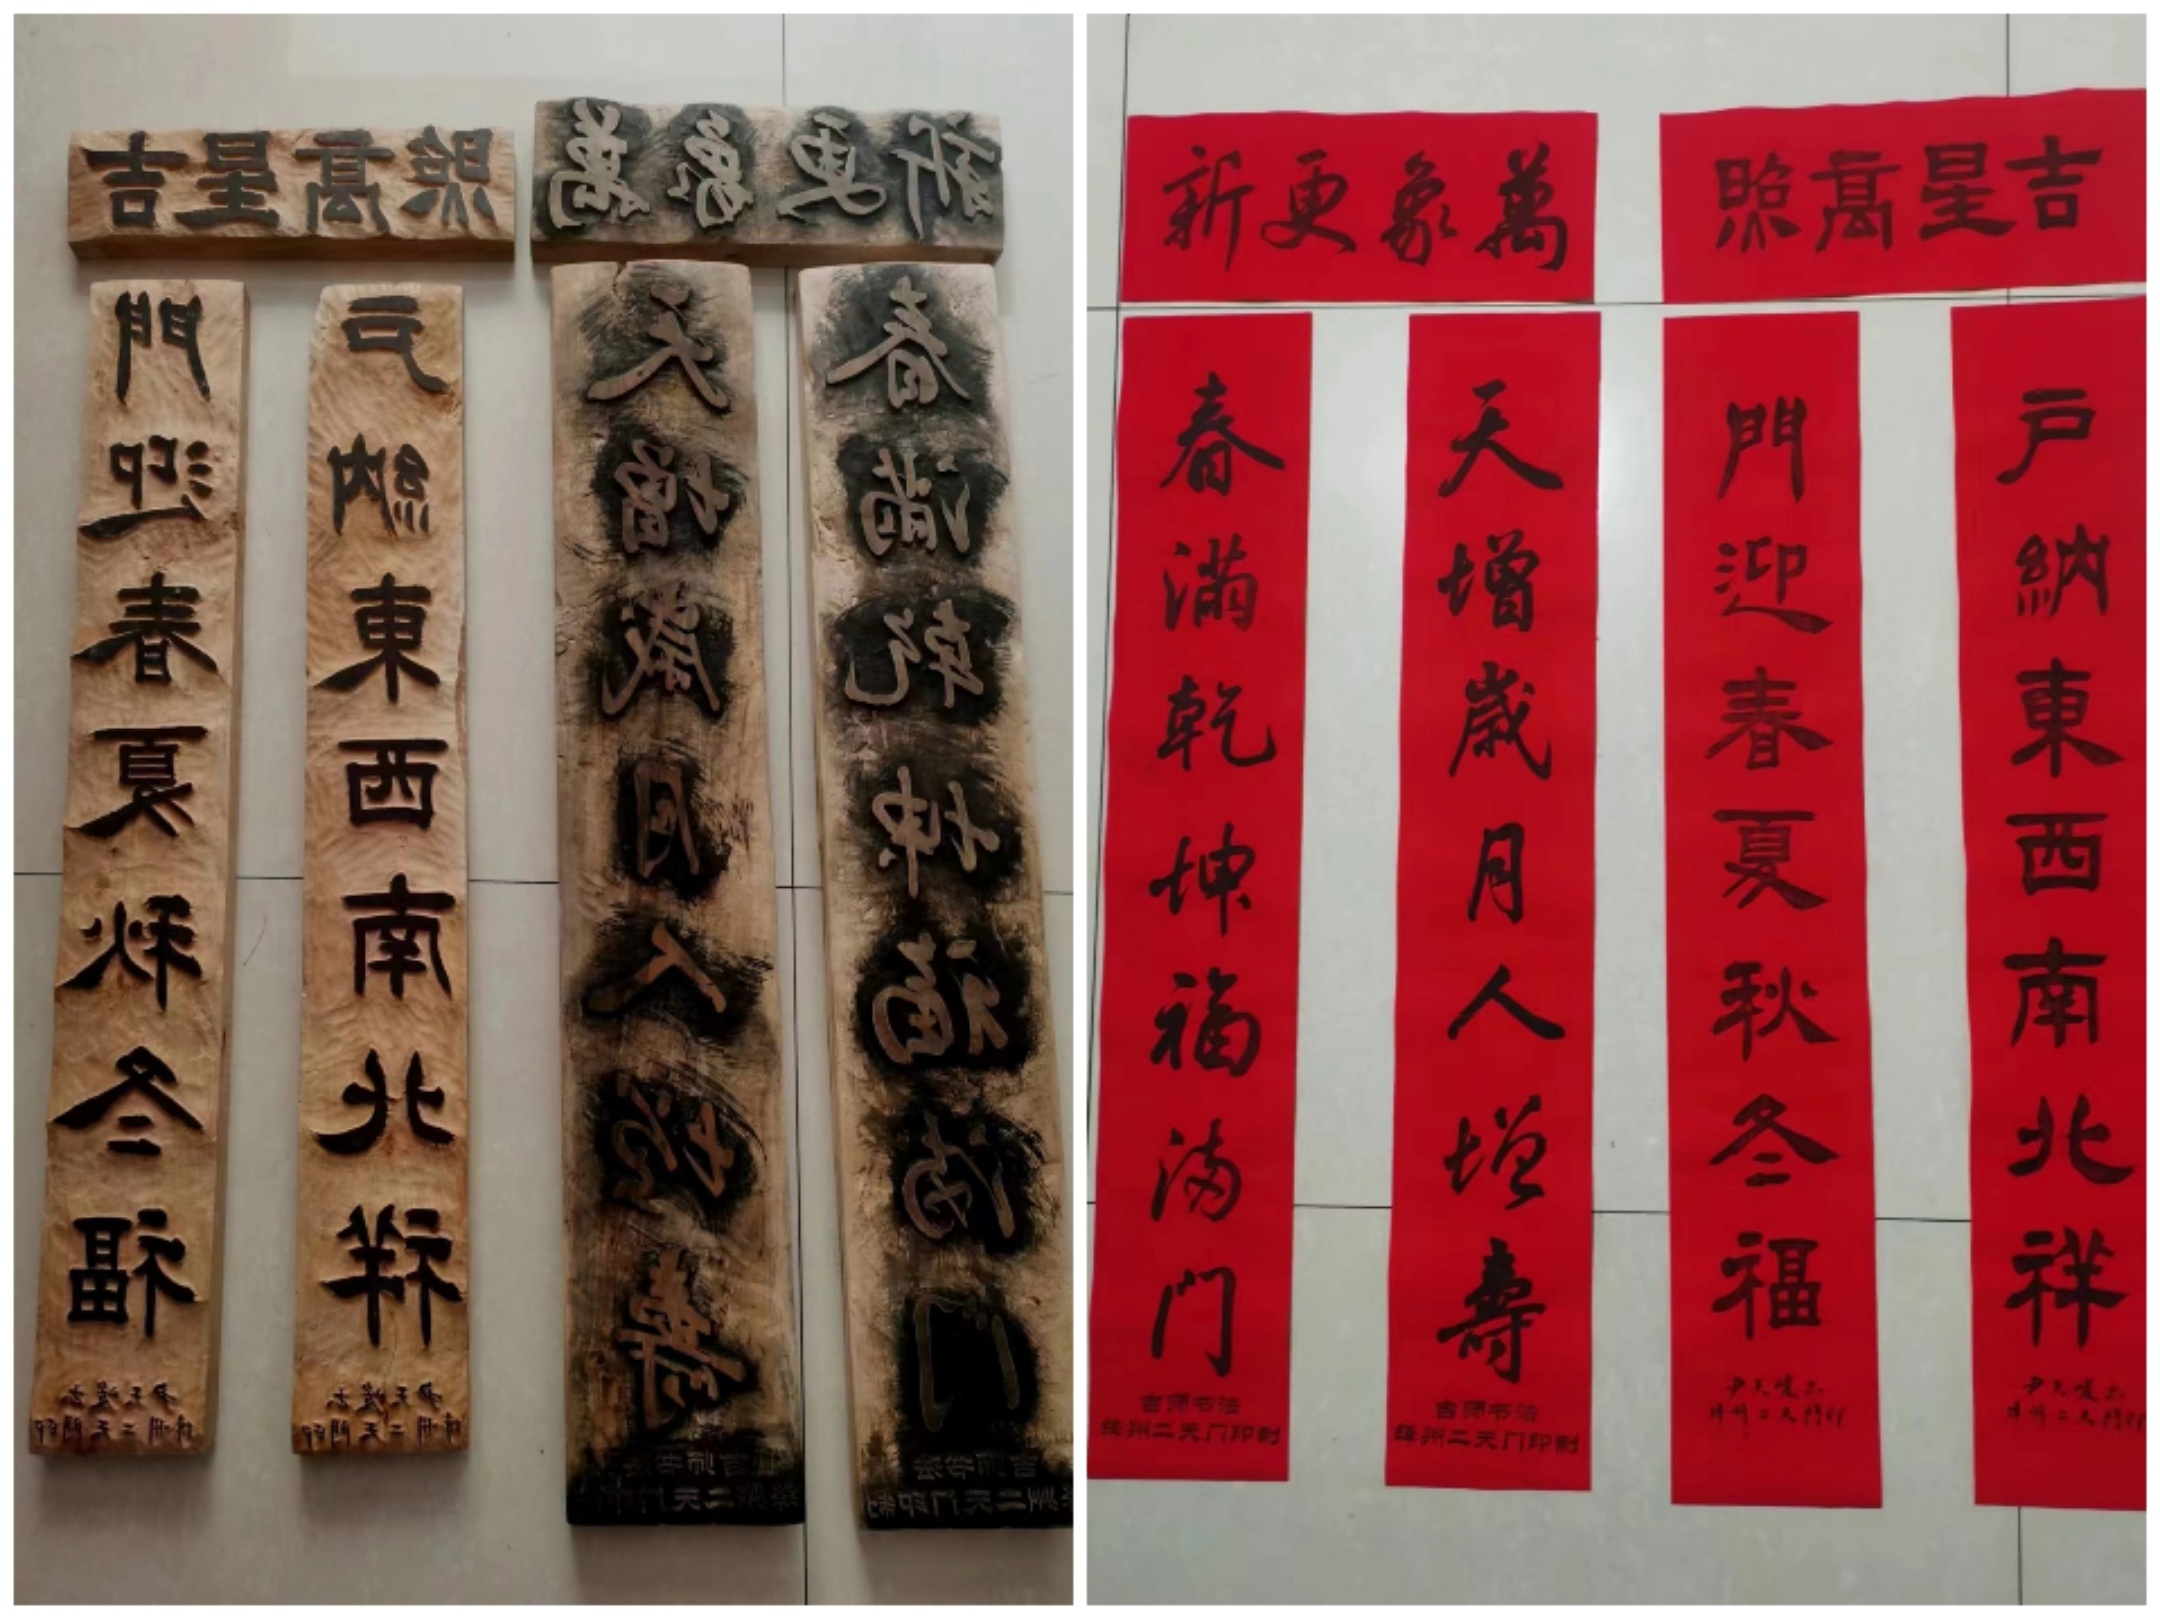 吉星高照
萬象更新
門迎春夏秋冬福
絳州二天門印
戶納東西南北祥
絳州二天門印
天增歲月人增壽
吉师书法
绛州二天门印制
春滿乾坤福滿門
吉师书法
绛州二天门印制
萬象更新
吉星高照
春滿乾坤福滿門
吉师书法
绛州二天门印制
天增歲月人增壽
吉师书法
绛州二天门印制
門迎春夏秋冬福
絳州二天門印
戶納東西南北祥
絳州二天門印